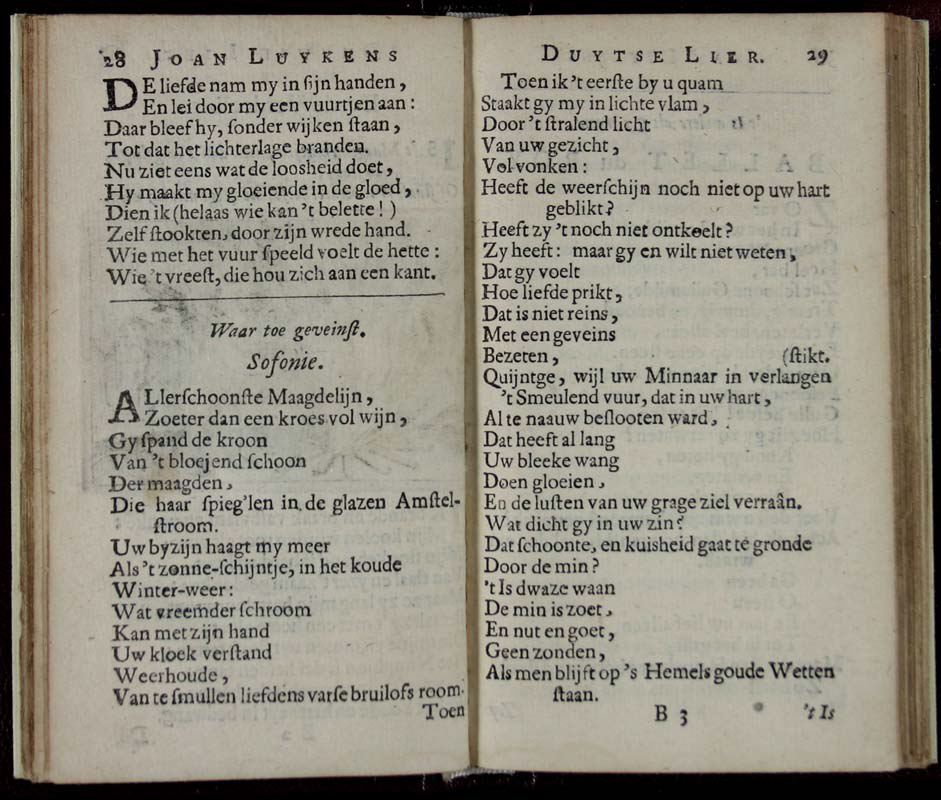 28 JOAN LUYKENS
DE liefde nam my in ſijn handen,
En lei door my een vuurtjen aan:
Daar bleef hy, ſonder wijken ſtaan,
Tot dat het lichterlage branden.
Nu ziet eens wat de loosheid doet,
Hy maakt my gloeiende in de gloed,
Dien ik (helaas wie kan 't belette!)
Zelf ſtookten, door zijn wrede hand.
Wie met het vuur ſpeeld voelt de hette:
Wie 't vreeſt, die hou zich aan een kant.
Waar toe geveinſt.
Sofonie.
ALlerſchoonſte Maagdelijn,
Zoeter dan een kroes vol wijn,
Gy ſpand de kroon
Van 't bloejend ſchoon
Der maagden,
Die haar ſpieg'len in de glazen Amſtel-
ſtroom.
Uw byzijn haagt my meer
Als 't zonne-ſchijntje, in het koude
Winter-weer:
Wat vreemder ſchroom
Kan met zijn hand
Uw kloek verſtand
Weerhoude,
Van te ſmullen liefdens varſe bruilofs room.
Toen
DUYTSE LIER. 29
Toen ik 't eerſte by u quam
Staakt gy my in lichte vlam,
Door 't ſtralend licht
Van uw gezicht,
Vol vonken:
Heeft de weerſchijn noch niet op uw hart
geblikt?
Heeft zy 't noch niet ontkeelt?
Zy heeft: maar gy en wilt niet weten,
Dat gy voelt
Hoe liefde prikt,
Dat is niet reins,
Met een geveins
Bezeten, (ſtikt.
Quijntge, wijl uw Minnaar in verlangen
't Smeulend vuur, dat in uw hart,
Al te naauw beſlooten ward,
Dat heeft al lang
Uw bleeke wang
Doen gloeien,
En de luſten van uw grage ziel verraân.
Wat dicht gy in uw zin?
Dat ſchoonte, en kuisheid gaat te gronde
Door de min?
't Is dwaze waan
De min is zoet,
En nut en goet,
Geen zonden,
Als men blijft op 's Hemels goude Wetten
ſtaan.
B 3 't Is